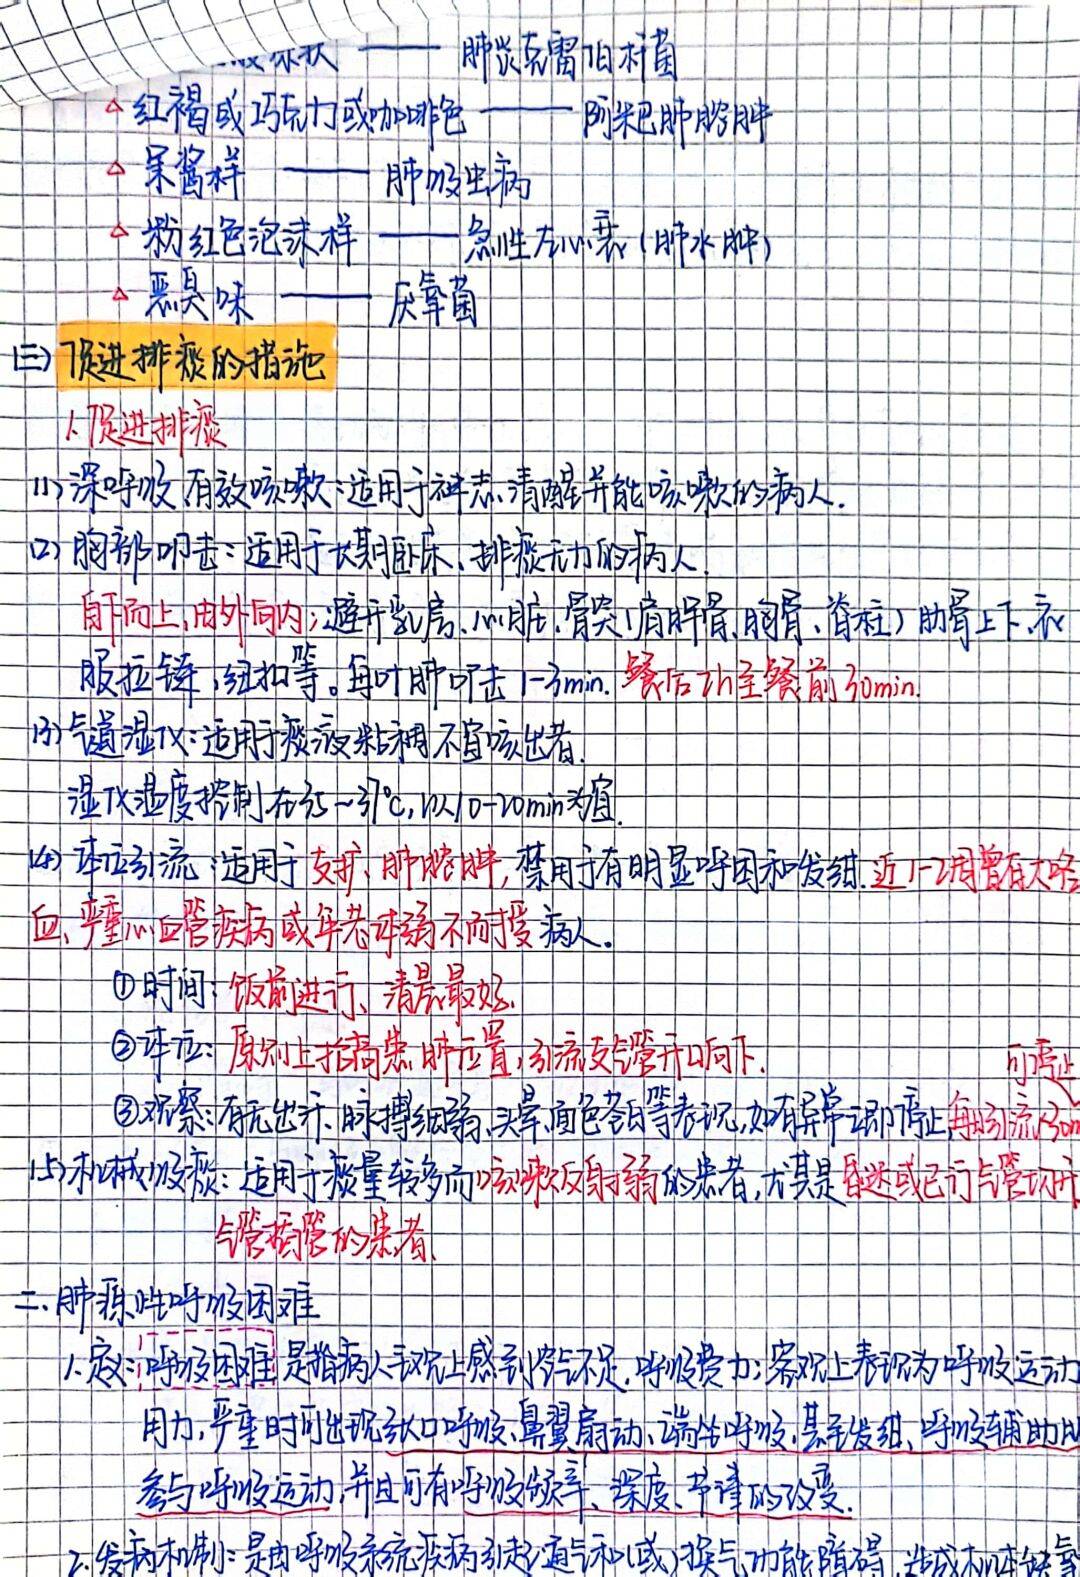 胶冻状 —— 肺炎克雷伯杆菌
△ 红褐或巧克力或咖啡色 —— 阿米巴肺脓肿
△ 果酱样 —— 肺吸虫病
△ 粉红色泡沫样 —— 急性左心衰(肺水肿)
△ 恶臭味 —— 厌氧菌
(三) 促进排痰的措施
1.促进排痰
(1) 深呼吸、有效咳嗽:适用于神志清醒并能咳嗽的病人.
(2) 胸部叩击:适用于长期卧床、排痰无力的病人.
自下而上,由外向内;避开乳房、心脏、骨突(肩胛骨、胸骨、脊柱)肋骨上下、衣
服拉链,纽扣等。每叶肺叩击1-3min.餐后2h至餐前30min.
(3)气道湿化:适用于痰液粘稠不宜咳出者.
湿化温度控制在35~37℃,以10-20min为宜.
(4) 体位引流:适用于支扩、肺脓肿,禁用于有明显呼困和发绀.近1-2周曾有大咯
血、严重心血管疾病或年老体弱不耐受病人。
①时间:饭前进行、清晨最好.
②体位:原则上抬高患肺位置,引流支气管开口向下.
可停止
③观察:有无出汗、脉搏细弱、头晕、面色苍白等表现,如有异常立即停止,每次引流<30m
(5)机械吸痰:适用于痰量较多而咳嗽反射弱的患者,尤其是昏迷或已行气管切开
气管插管的患者.
二.肺源性呼吸困难
1.定义:呼吸困难是指病人主观上感到空气不足,呼吸费力;客观上表现为呼吸运动
用力,严重时可出现张口呼吸、鼻翼扇动、端坐呼吸,甚至发绀、呼吸辅助肌
参与呼吸运动,并且可有呼吸频率、深度、节律的改变.
2.发病机制:是由呼吸系统疾病引起通气和(或)换气功能障碍,造成机体缺氧